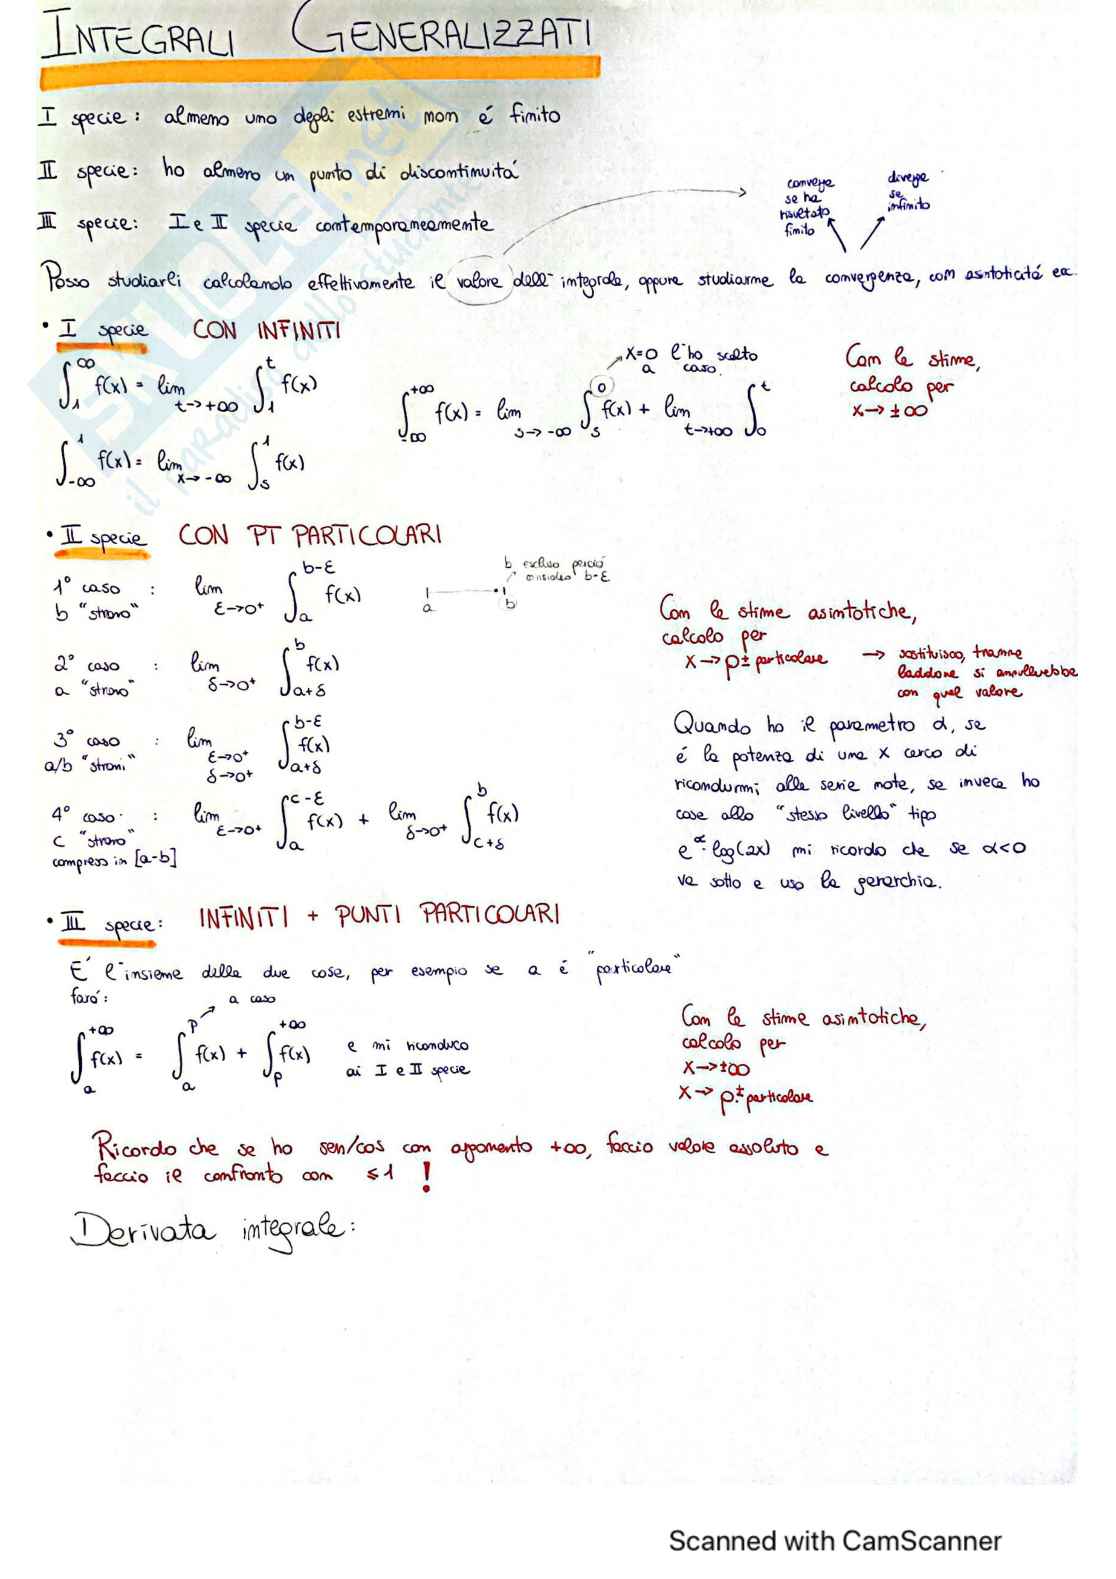 INTEGRALI GENERALIZZATI
I specie: almeno uno degli estremi non é finito
II specie: ho almeno un punto di discontinuitá
III specie: I e II specie contemporaneamente
converge se ha risultato finito
diverge se infinito
Posso studiarli calcolando effettivamente il valore dell'integrale, oppure studiarne la convergenza, con asintoticitá ecc.
• I specie CON INFINITI
∫₁^∞ f(x) = lim t→+∞ ∫₁^t f(x)
∫_-∞^+∞ f(x) = lim s→-∞ ∫_s^0 f(x) + lim t→+∞ ∫_0^t
x=0 l'ho scelto a caso.
Con le stime,
calcolo per
x→±∞
∫_-∞^1 f(x) = lim x→-∞ ∫_s^1 f(x)
• II specie CON PT PARTICOLARI
1° caso : lim ε→0⁺ ∫_a^b-ε f(x)
b "strano"
a b
b escluso perció
considero b-ε
2° caso : lim δ→0⁺ ∫_a+δ^b f(x)
a "strano"
3° caso : lim ε→0⁺ δ→0⁺ ∫_a+δ^b-ε f(x)
a/b "strani"
4° caso : lim ε→0⁺ ∫_a^c-ε f(x) + lim δ→0⁺ ∫_c+δ^b f(x)
c "strano"
compreso in [a-b]
Con le stime asintotiche,
calcolo per
x→p± particolare → sostituisco, tranne
laddove si annullerebbe
con quel valore
Quando ho il parametro α, se
é la potenza di una x cerco di
ricondurmi alle serie note, se invece ho
cose allo "stesso livello" tipo
e^α · log(2x) mi ricordo che se α<0
va sotto e uso la gerarchia.
• III specie: INFINITI + PUNTI PARTICOLARI
É l'insieme delle due cose, per esempio se a é "particolare"
faró:
a caso
∫_a^+∞ f(x) = ∫_a^p f(x) + ∫_p^+∞ f(x) e mi riconduco
ai I e II specie
Con le stime asintotiche,
calcolo per
x→±∞
x→p± particolare
Ricordo che se ho sen/cos con argomento +∞, faccio valore assoluto e
faccio il confronto con ≤1 !
Derivata integrale:
Scanned with CamScanner